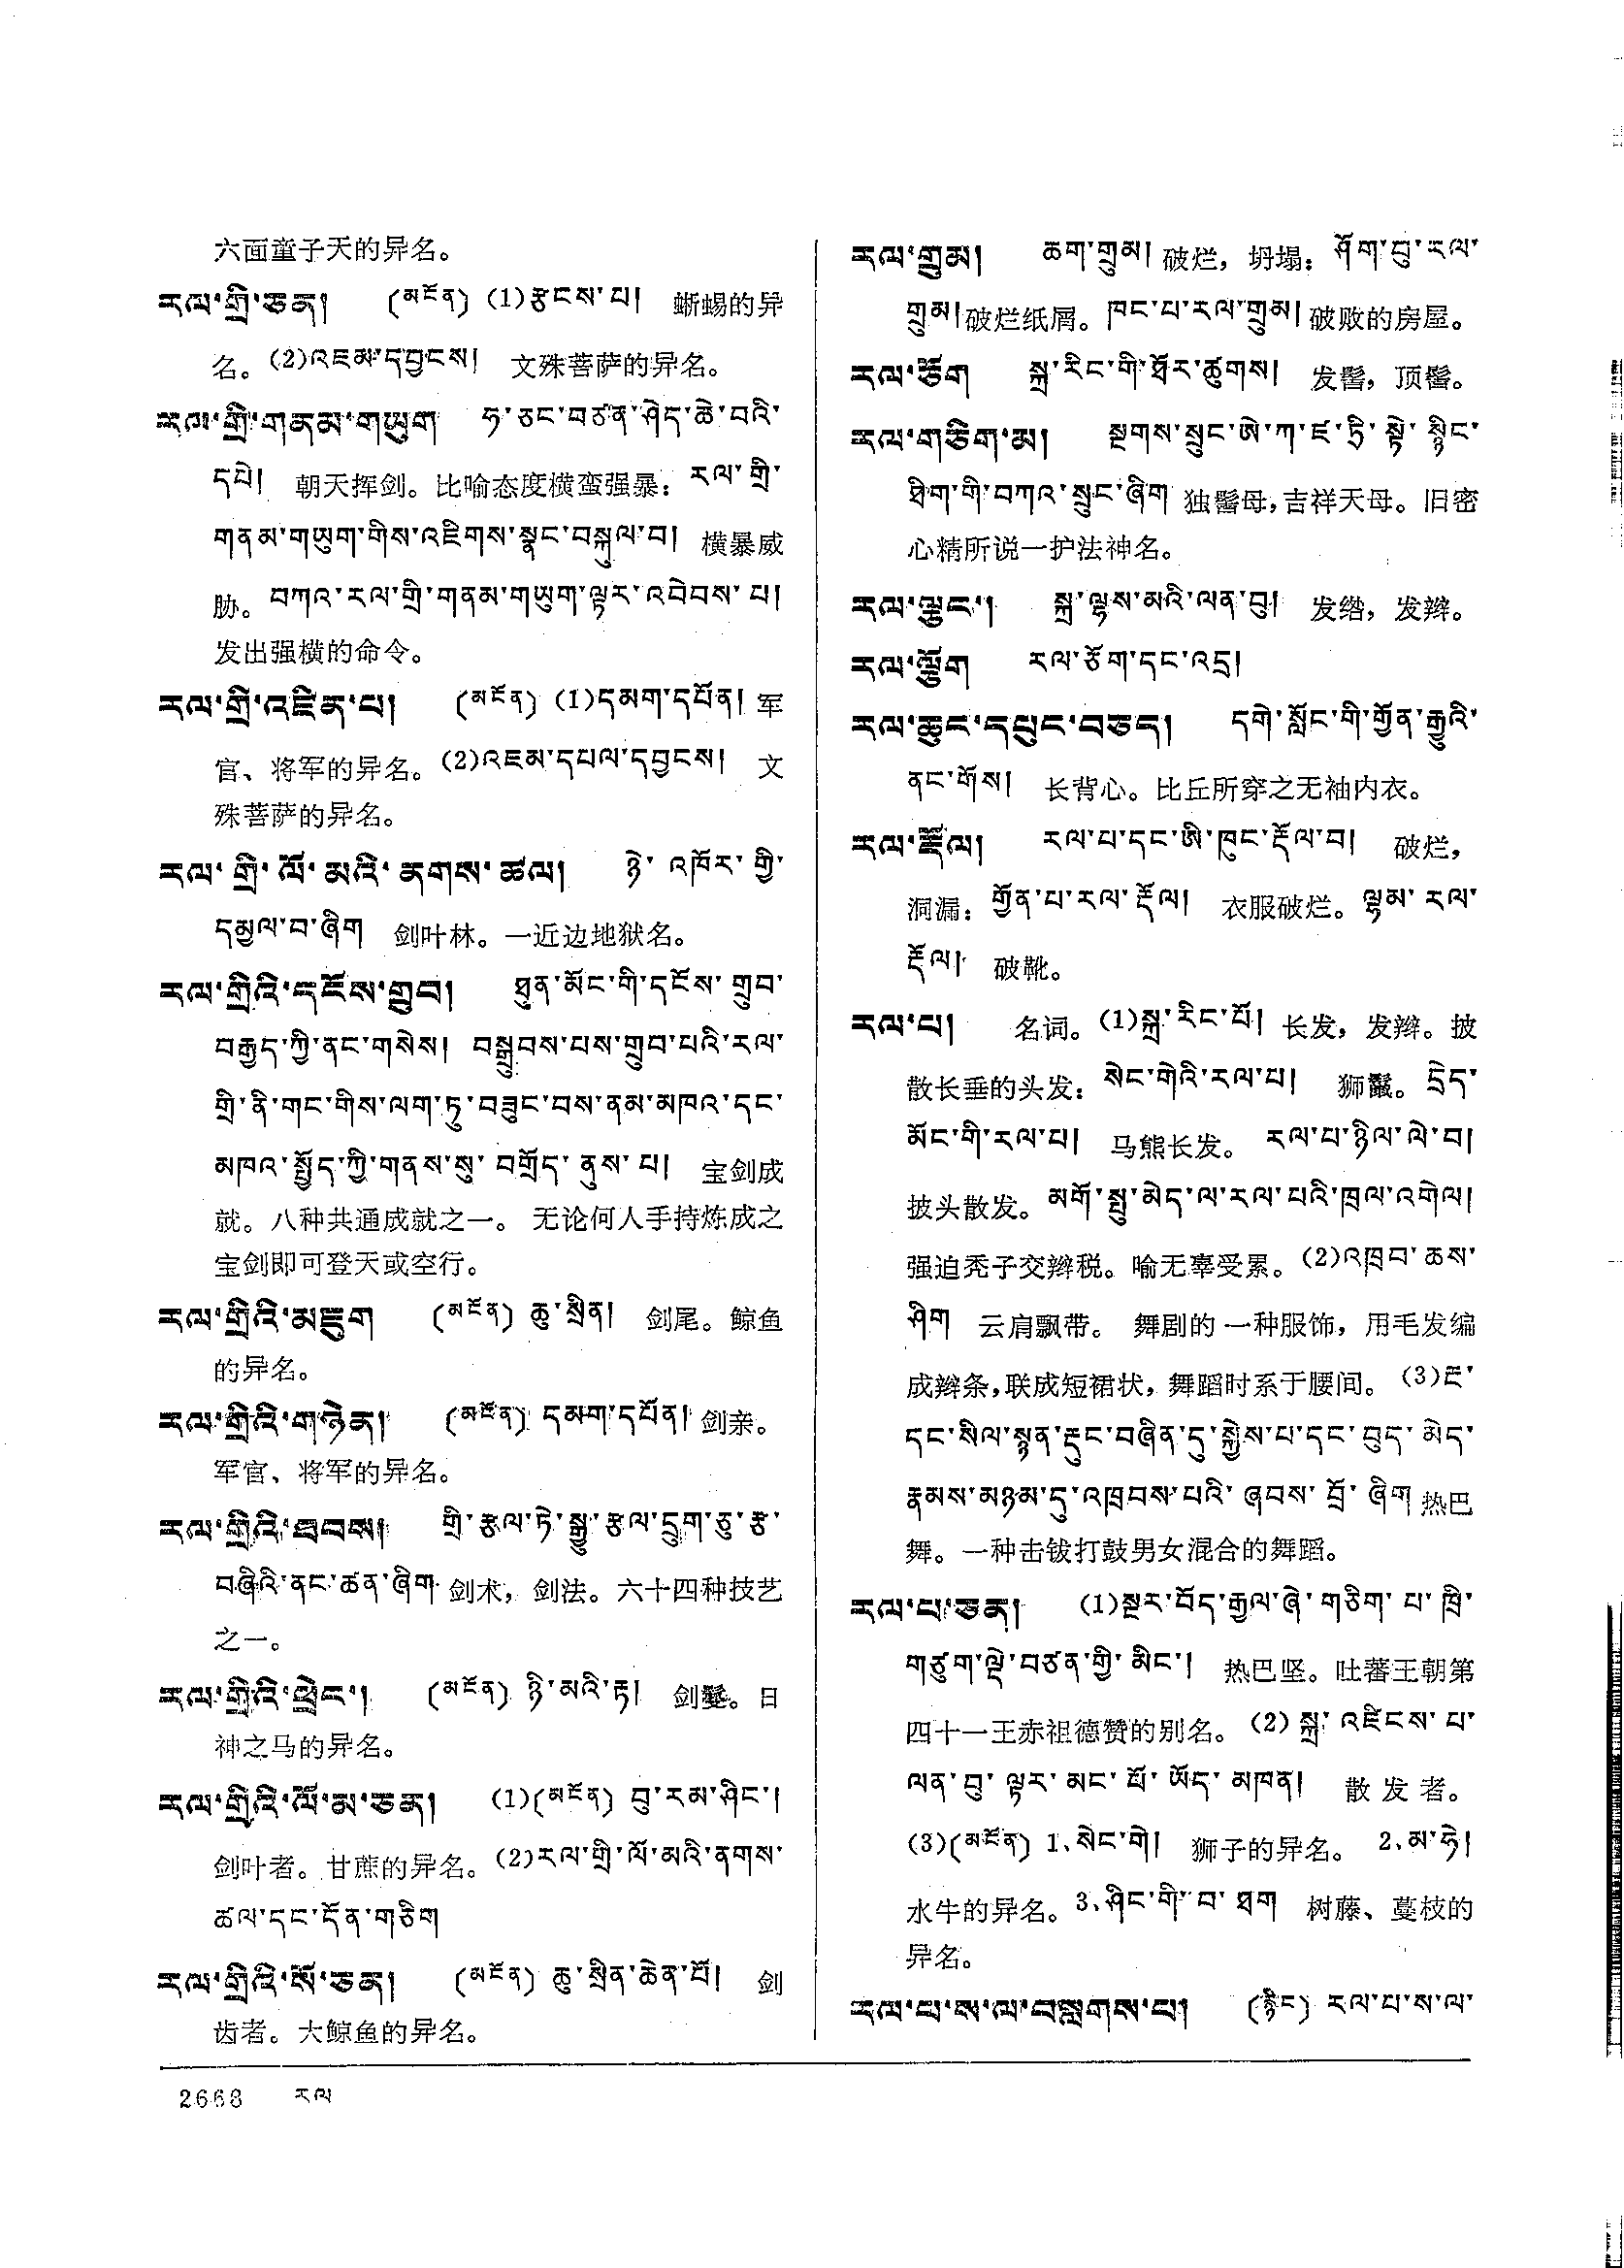 六面童子天的异名。
རལ་གྲི་ཅན། (མངོན) (1)རྩངས་པ། 蜥蜴的异
名。(2)འཇམ་དབྱངས། 文殊菩萨的异名。
རལ་གྲི་གནམ་གཡུག ཧ་ཅང་བཙན་ཤེད་ཆེ་བའི་
དཔེ། 朝天挥剑。比喻态度横蛮强暴：རལ་གྲི་
གནམ་གཡུག་གིས་འཇིགས་སྣང་བསྐུལ་བ། 横暴威
胁。བཀའ་རལ་གྲི་གནམ་གཡུག་ལྟར་འབེབས་པ།
发出强横的命令。
རལ་གྲི་འཛིན་པ། (མངོན) (1)དམག་དཔོན། 军
官、将军的异名。(2)འཇམ་དཔལ་དབྱངས། 文
殊菩萨的异名。
རལ་གྲི་ལོ་མའི་ནགས་ཚལ། ཉེ་འཁོར་གྱི་
དམྱལ་བ་ཞིག 剑叶林。一近边地狱名。
རལ་གྲིའི་དངོས་གྲུབ། ཐུན་མོང་གི་དངོས་གྲུབ་
བརྒྱད་ཀྱི་ནང་གསེས། བསྒྲུབས་པས་གྲུབ་པའི་རལ་
གྲི་ནི་གང་གིས་ལག་ཏུ་བཟུང་བས་ནམ་མཁའ་དང་
མཁའ་སྤྱོད་ཀྱི་གནས་སུ་བགྲོད་ནུས་པ། 宝剑成
就。八种共通成就之一。 无论何人手持炼成之
宝剑即可登天或空行。
རལ་གྲིའི་མཇུག (མངོན) ཆུ་སྲིན། 剑尾。鲸鱼
的异名。
རལ་གྲིའི་གཉེན། (མངོན) དམག་དཔོན། 剑亲。
军官、将军的异名。
རལ་གྲིའི་ཐབས། གྲི་རྩལ་ཏེ་སྒྱུ་རྩལ་དྲུག་ཅུ་རྩ་
བཞིའི་ནང་ཚན་ཞིག 剑术，剑法。六十四种技艺
之一。
རལ་གྲིའི་ཕྲེང་། (མངོན) ཉི་མའི་རྟ། 剑鬘。日
神之马的异名。
རལ་གྲིའི་ལོ་མ་ཅན། (1)(མངོན) བུ་རམ་ཤིང་།
剑叶者。甘蔗的异名。(2)རལ་གྲི་ལོ་མའི་ནགས་
ཚལ་དང་དོན་གཅིག
རལ་གྲིའི་སོ་ཅན། (མངོན) ཆུ་སྲིན་ཆེན་པོ། 剑
齿者。大鲸鱼的异名。
རལ་གྲུམ། ཆག་གྲུམ། 破烂，坍塌：ཤོག་བུ་རལ་
གྲུམ། 破烂纸屑。ཁང་པ་རལ་གྲུམ། 破败的房屋。
རལ་ཅོག སྐྲ་རིང་གི་ཐོར་ཚུགས། 发髻，顶髻。
རལ་གཅིག་མ། སྔགས་སྲུང་ཨེ་ཀ་ཛ་ཏི་སྟེ་སྙིང་
ཐིག་གི་བཀའ་སྲུང་ཞིག 独髻母，吉祥天母。旧密
心精所说一护法神名。
རལ་ལྕང་། སྐྲ་ལྷས་མའི་ལན་བུ། 发绺，发辫。
རལ་ལྕོག རལ་ཅོག་དང་འདྲ།
རལ་ཆུང་དཔུང་བཅད། དགེ་སློང་གི་གྱོན་རྒྱུའི་
ནང་གོས། 长背心。比丘所穿之无袖内衣。
རལ་རྡོལ། རལ་པ་དང་ཨི་ཁུང་རྡོལ་བ། 破烂，
洞漏：གྱོན་པ་རལ་རྡོལ། 衣服破烂。ལྷམ་རལ་
རྡོལ། 破靴。
རལ་པ། 名词。(1)སྐྲ་རིང་པོ། 长发，发辫。披
散长垂的头发：སེང་གེའི་རལ་པ། 狮鬣。དྲེད་
མོང་གི་རལ་པ། 马熊长发。 རལ་པ་ཉིལ་ལེ་བ།
披头散发。མགོ་སྤུ་མེད་ལ་རལ་པའི་ཁྲལ་འགེལ།
强迫秃子交辫税。喻无辜受累。(2)འཁྲབ་ཆས་
ཤིག 云肩飘带。 舞剧的一种服饰，用毛发编
成辫条，联成短裙状，舞蹈时系于腰间。(3)ང་
དང་སིལ་སྙན་རྡུང་བཞིན་དུ་སྐྱེས་པ་དང་བུད་མེད་
རྣམས་མཉམ་དུ་འཁྲབས་པའི་ཞབས་བྲོ་ཞིག 热巴
舞。一种击钹打鼓男女混合的舞蹈。
རལ་པ་ཅན། (1)སྔར་བོད་རྒྱལ་ཞེ་གཅིག་པ་ཁྲི་
གཙུག་ལྡེ་བཙན་གྱི་མིང་། 热巴坚。吐蕃王朝第
四十一王赤祖德赞的别名。(2) སྐྲ་འཛིངས་པ་
ལན་བུ་ལྟར་མང་པོ་ཡོད་མཁན། 散发者。
(3)(མངོན) 1、སེང་གེ། 狮子的异名。 2、མ་ཧེ།
水牛的异名。3、ཤིང་གི་བ་ཐག 树藤、蔓枝的
异名。
རལ་པ་ས་ལ་བསླགས་པ། (རྙིང) རལ་པ་ས་ལ་
2668 རལ